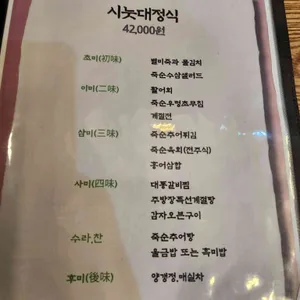 시늇대정식
42,000원
초미(初味) 별미죽과 물김치
죽순수삼샐러드
이미(二味) 활어회
죽순우렁초무침
계절전
삼미(三味) 죽순추어튀김
죽순육회(전주식)
홍어삼합
사미(四味) 대통갈비찜
주방장특선계절탕
감자오븐구이
수라,찬 죽순추어탕
울금밥 또는 흑미밥
후미(後味) 양갱정,매실차